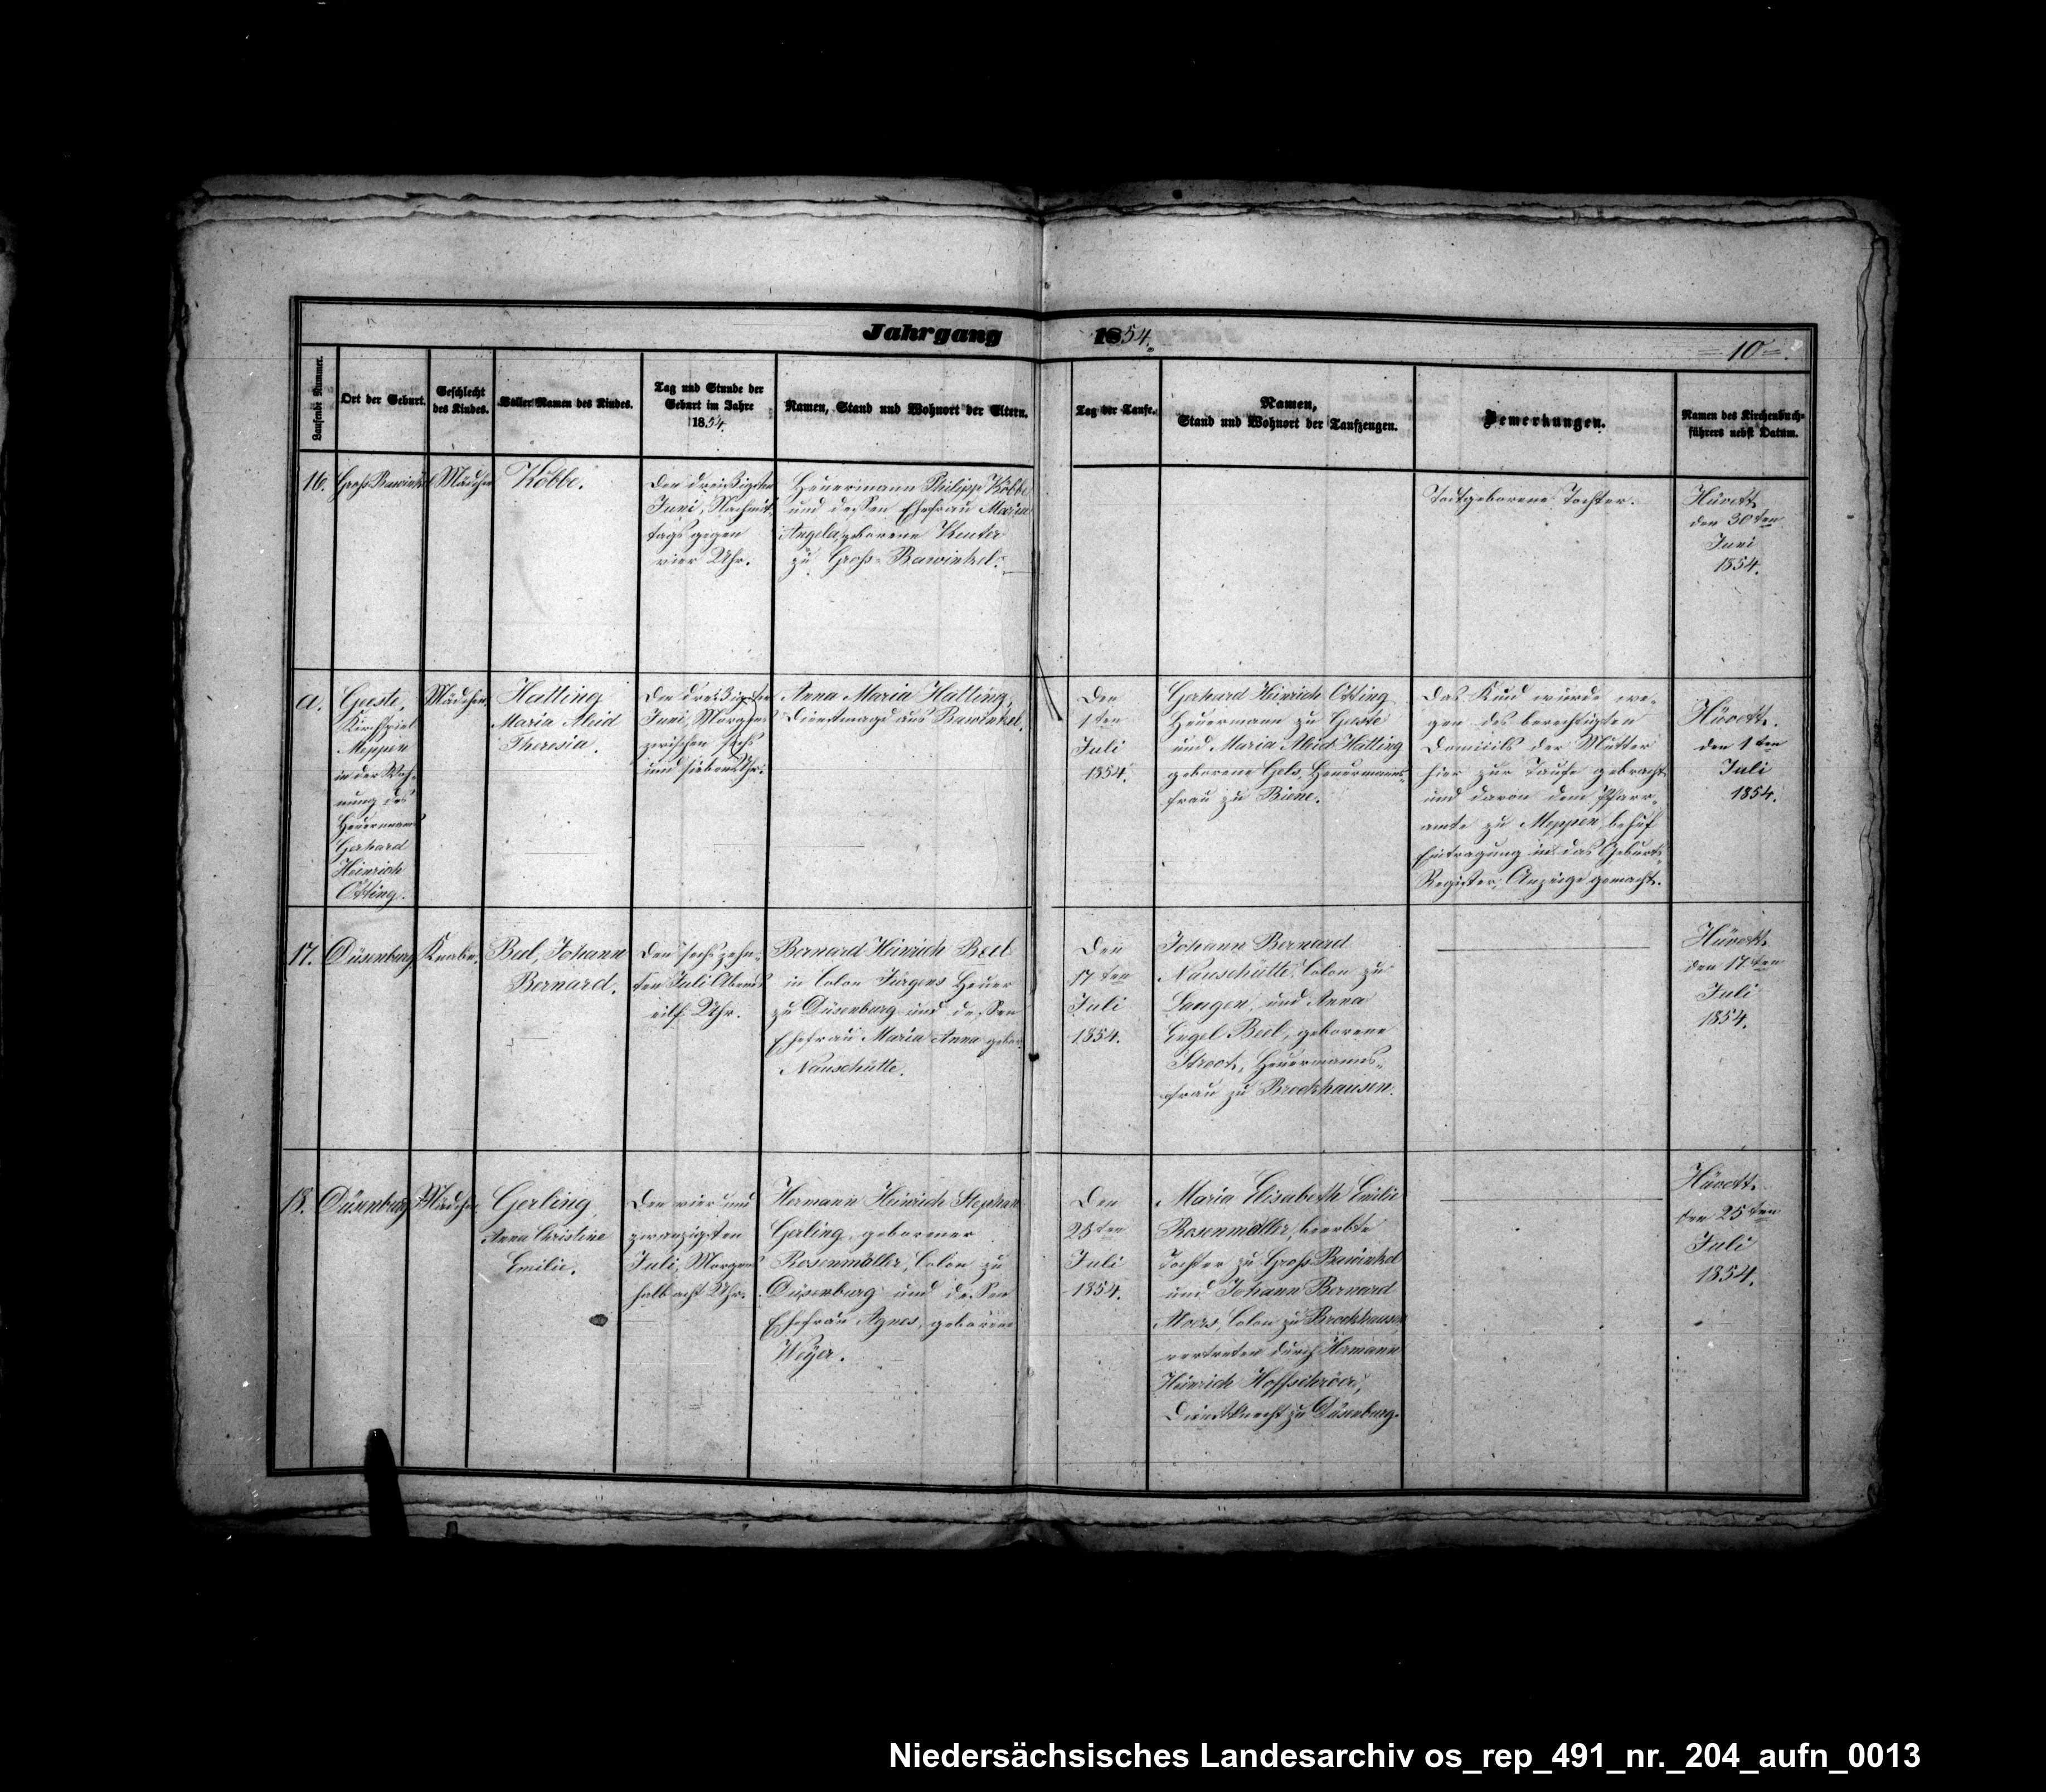 Jahrgang 1854.
=10=.
Laufende Nummer.
Ort der Geburt.
Geschlecht
des Kindes.
Voller Namen des Kindes.
Tag und Stunde der
Geburt im Jahre
1854.
Namen, Stand und Wohnort der Eltern.
Tag der Taufe.
Namen,
Stand und Wohnort der Taufzeugen.
Bemerkungen.
Namen des Kirchenbuch-
führers nebst Datum.
16.
Groß Bawinkel
Mädchen
Köbbe.
Den dreißigsten
Juni, Nachmit-
tags gegen
vier Uhr.
Heuermann Philipp Köbbe
und dessen Ehefrau Maria
Angela, geborene Keuter
zu Groß-Bawinkel.
Todtgeborene Tochter.
Hüvett.
den 30ten
Juni
1854.
a.
Geeste,
Kirchspiel
Meppen
in der Woh-
nung des
Heuermanns
Gerhard
Heinrich
Otting.
Mädchen
Hatting
Maria Aleid
Theresia.
Den dreißigsten
Juni, Morgens
zwischen sechs
und sieben Uhr.
Anna Maria Hatting,
Dienstmagd aus Bawinkel.
Den
1ten
Juli
1854.
Gerhard Heinrich Otting
Heuermann zu Geeste
und Maria Aleid Hatting
geborene Gels, Heuermanns-
frau zu Biene.
Das Kind wurde we-
gen des berechtigten
Domicils der Mutter
hier zur Taufe gebracht
und davon dem Pfarr-
amte zu Meppen, behuf
Eintragung in das Geburts-
Register, Anzeige gemacht.
Hüvett.
den 1ten
Juli
1854.
17.
Düsenburg
Knabe.
Beel, Johann
Bernard.
Den sechszehn-
ten Juli Abends
eilf Uhr.
Bernard Heinrich Beel
in Colon Jürgens Heuer
zu Düsenburg und dessen
Ehefrau Maria Anna gebor.
Nauschütte.
Den
17ten
Juli
1854.
Johann Bernard
Nauschütte, Colon zu
Langen, und Anna
Engel Beel, geborene
Stroot, Heuermanns-
frau zu Brockhausen.
Hüvett.
den 17ten
Juli
1854.
18.
Düsenburg
Mädchen
Gerling
Anna Christine
Emilie.
Den vier und
zwanzigsten
Juli, Morgens
halb acht Uhr.
Hermann Heinrich Stephan
Gerling, geborener
Rosenmöller, Colon zu
Düsenburg und dessen
Ehefrau Agnes, geborene
Weyer.
Den
25ten
Juli
1854.
Maria Elisabeth Emilie
Rosenmöller, beerbte
Tochter zu Groß Bawinkel
und Johann Bernard
Moers, Colon zu Brockhausen
vertreten durch Hermann
Heinrich Hoffschröer,
Dienstknecht zu Düsenburg.
Hüvett.
den 25ten
Juli
1854.
Niedersächsisches Landesarchiv os_rep_491_nr._204_aufn_0013